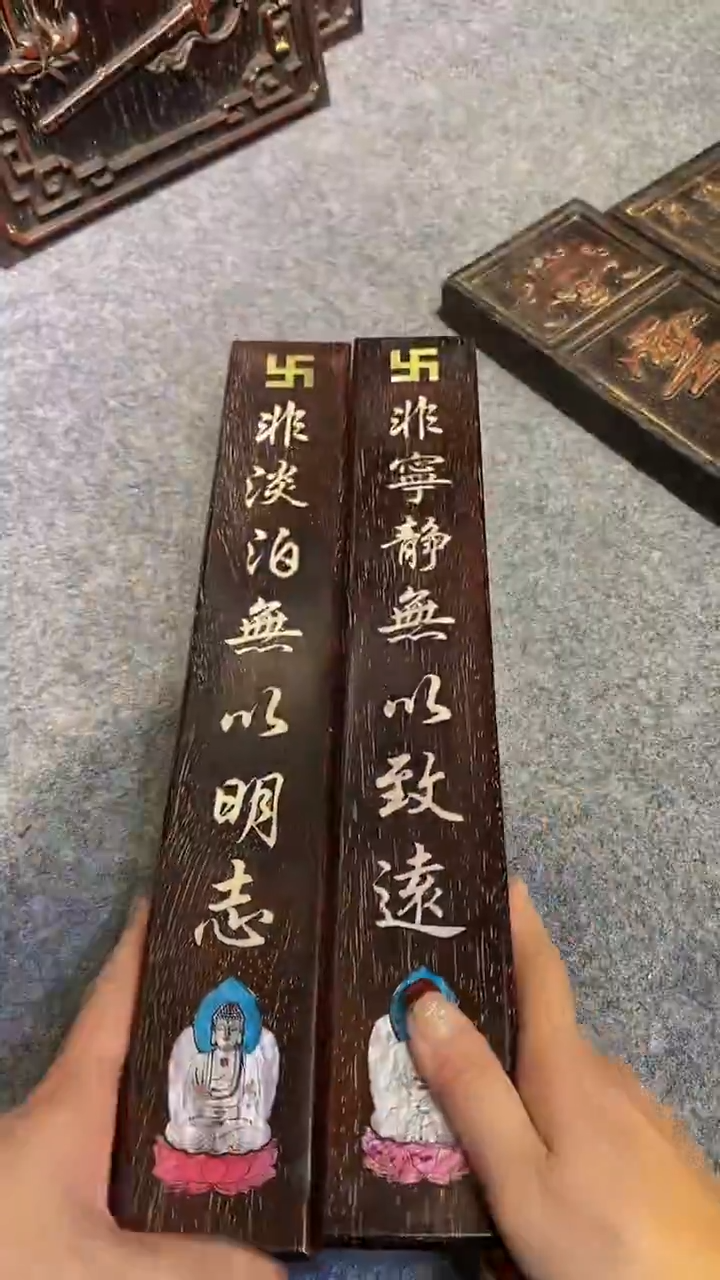 卐
非淡泊無以明志
卐
非寧静無以致遠